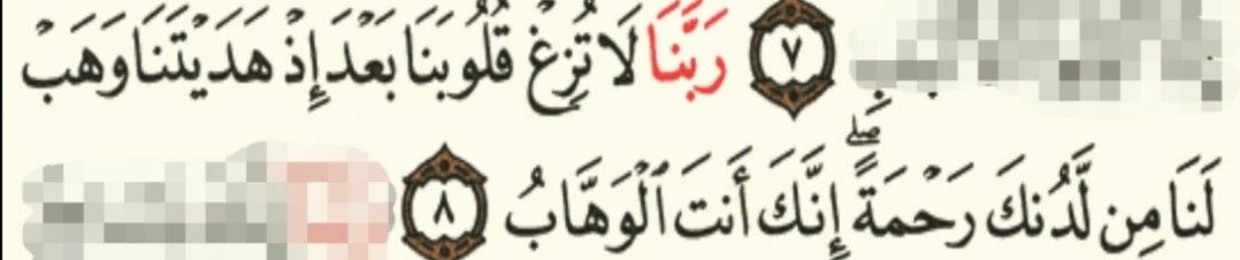 ٧ رَبَّنَا لَا تُزِغْ قُلُوبَنَا بَعْدَ إِذْ هَدَيْتَنَا وَهَبْ
لَنَا مِن لَّدُنكَ رَحْمَةً ۖ إِنَّكَ أَنتَ ٱلْوَهَّابُ ٨